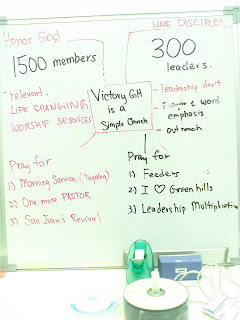 Honor God
1500 members
relevant,
LIFE CHANGING
WORSHIP SERVICES
Pray for
1) Morning Service (Tagalog)
2) One more PASTOR
3) San Juan's Revival
Victory GH
is a
Simple Church
MAKE DISCIPLES
300
leaders.
- leadership dev't
- & word
emphasis
- outreach
Pray for
1) Feeders
2) I ♡ Greenhills
3) Leadership Multiplication